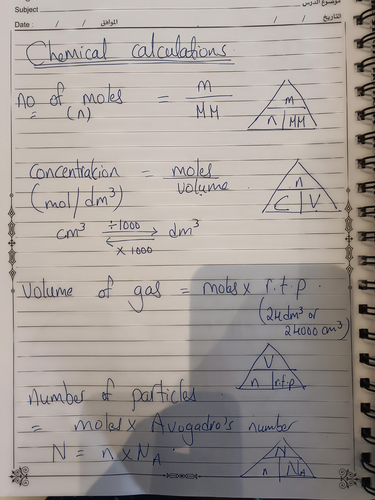 Subject موضوع الدرس
Date : / / الموافق / / التاريخ
Chemical calculations.
no of moles = m
(n) MM
m
n MM
Concentration = moles
(mol/dm³) volume
n
C V
cm³ ÷1000 dm³
× 1000
Volume of gas = moles × r.t.p.
(24dm³ or
24000 cm³)
V
n r.t.p
number of particles
= moles × Avogadro's number
N = n × NA.
N
n NA